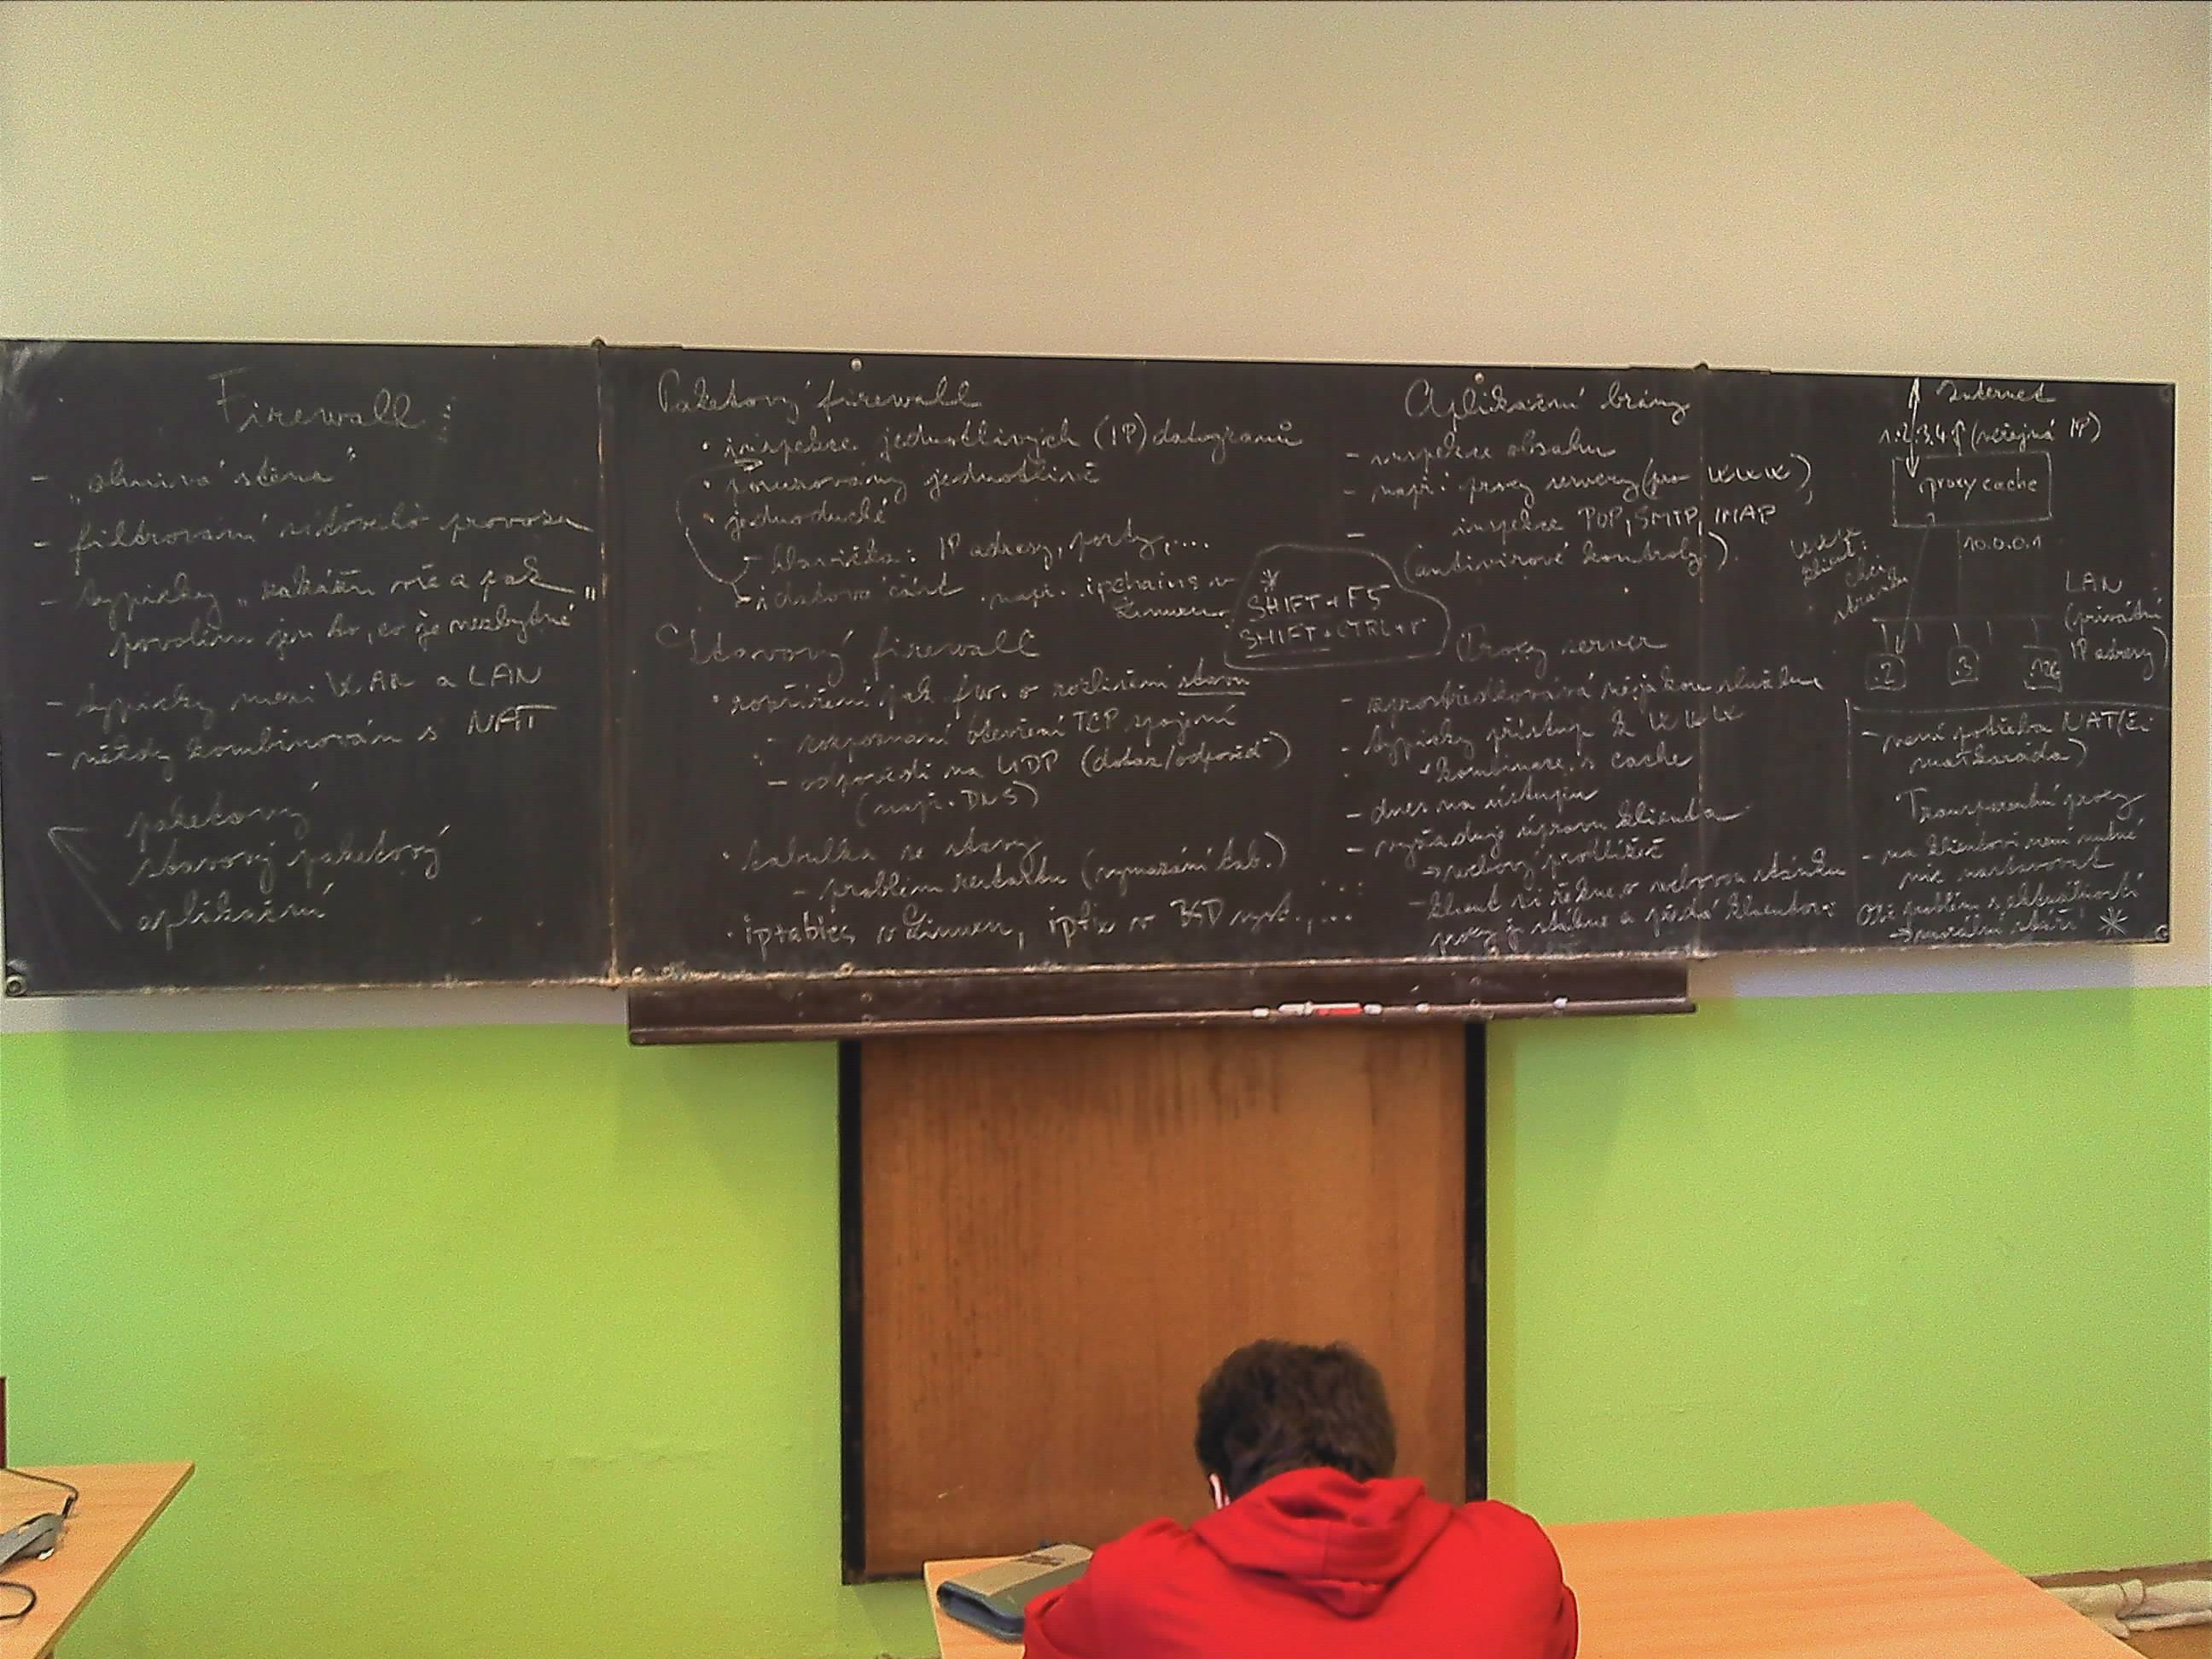 Firewall
- „ohnivá stěna"
- filtrování síťového provozu
- typicky „zakážu vše a pak
povolím jen to, co je nezbytné"
- typicky mezi WAN a LAN
- někdy kombinován s NAT
paketový
stavový paketový
aplikační
Paketový firewall
• inspekce jednotlivých (IP) datagramů
• posuzovány jednotlivě
• jednoduché
- hlavička: IP adresy, porty, ...
- i datová část např. ipchains v
Linuxu
Stavový firewall
• rozšíření pak. fw. o rozlišení stavu
- rozpoznání otevření TCP spojení
- odpovědi na UDP (dotaz/odpověď)
(např. DNS)
• tabulka se stavy
- problém restartu (vymazání tab.)
• iptables v Linuxu, ipfw v BSD syst., ...
*
SHIFT + F5
SHIFT + CTRL + r
Aplikační brány
- inspekce obsahu
- např. proxy servery (pro WWW),
- inspekce POP, SMTP, IMAP
(antivirové kontroly)
Proxy server
- zprostředkovává nějakou službu
- typicky přístup k WWW
kombinace s cache
- dnes na ústupu
- vyžaduje úpravu klienta
→ webový prohlížeč
- klient si řekne o webovou stránku
proxy ji stáhne a předá klientovi
Internet
1.2.3.4 (veřejná IP)
proxy cache
10.0.0.1
klient:
chci
stránku
LAN
(privátní
IP adresy)
.2 .3
- není potřeba NAT (či
maškaráda)
Transparentní proxy
- na klientovi není nutné
nic nastavovat
problém s aktuálností
*